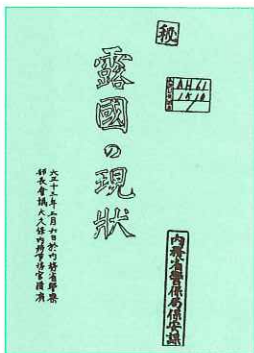 秘
露國の現狀
大正十三年三月廿日於內務省警察
部長會議大久保內務事務官講演
內務省警保局保安課